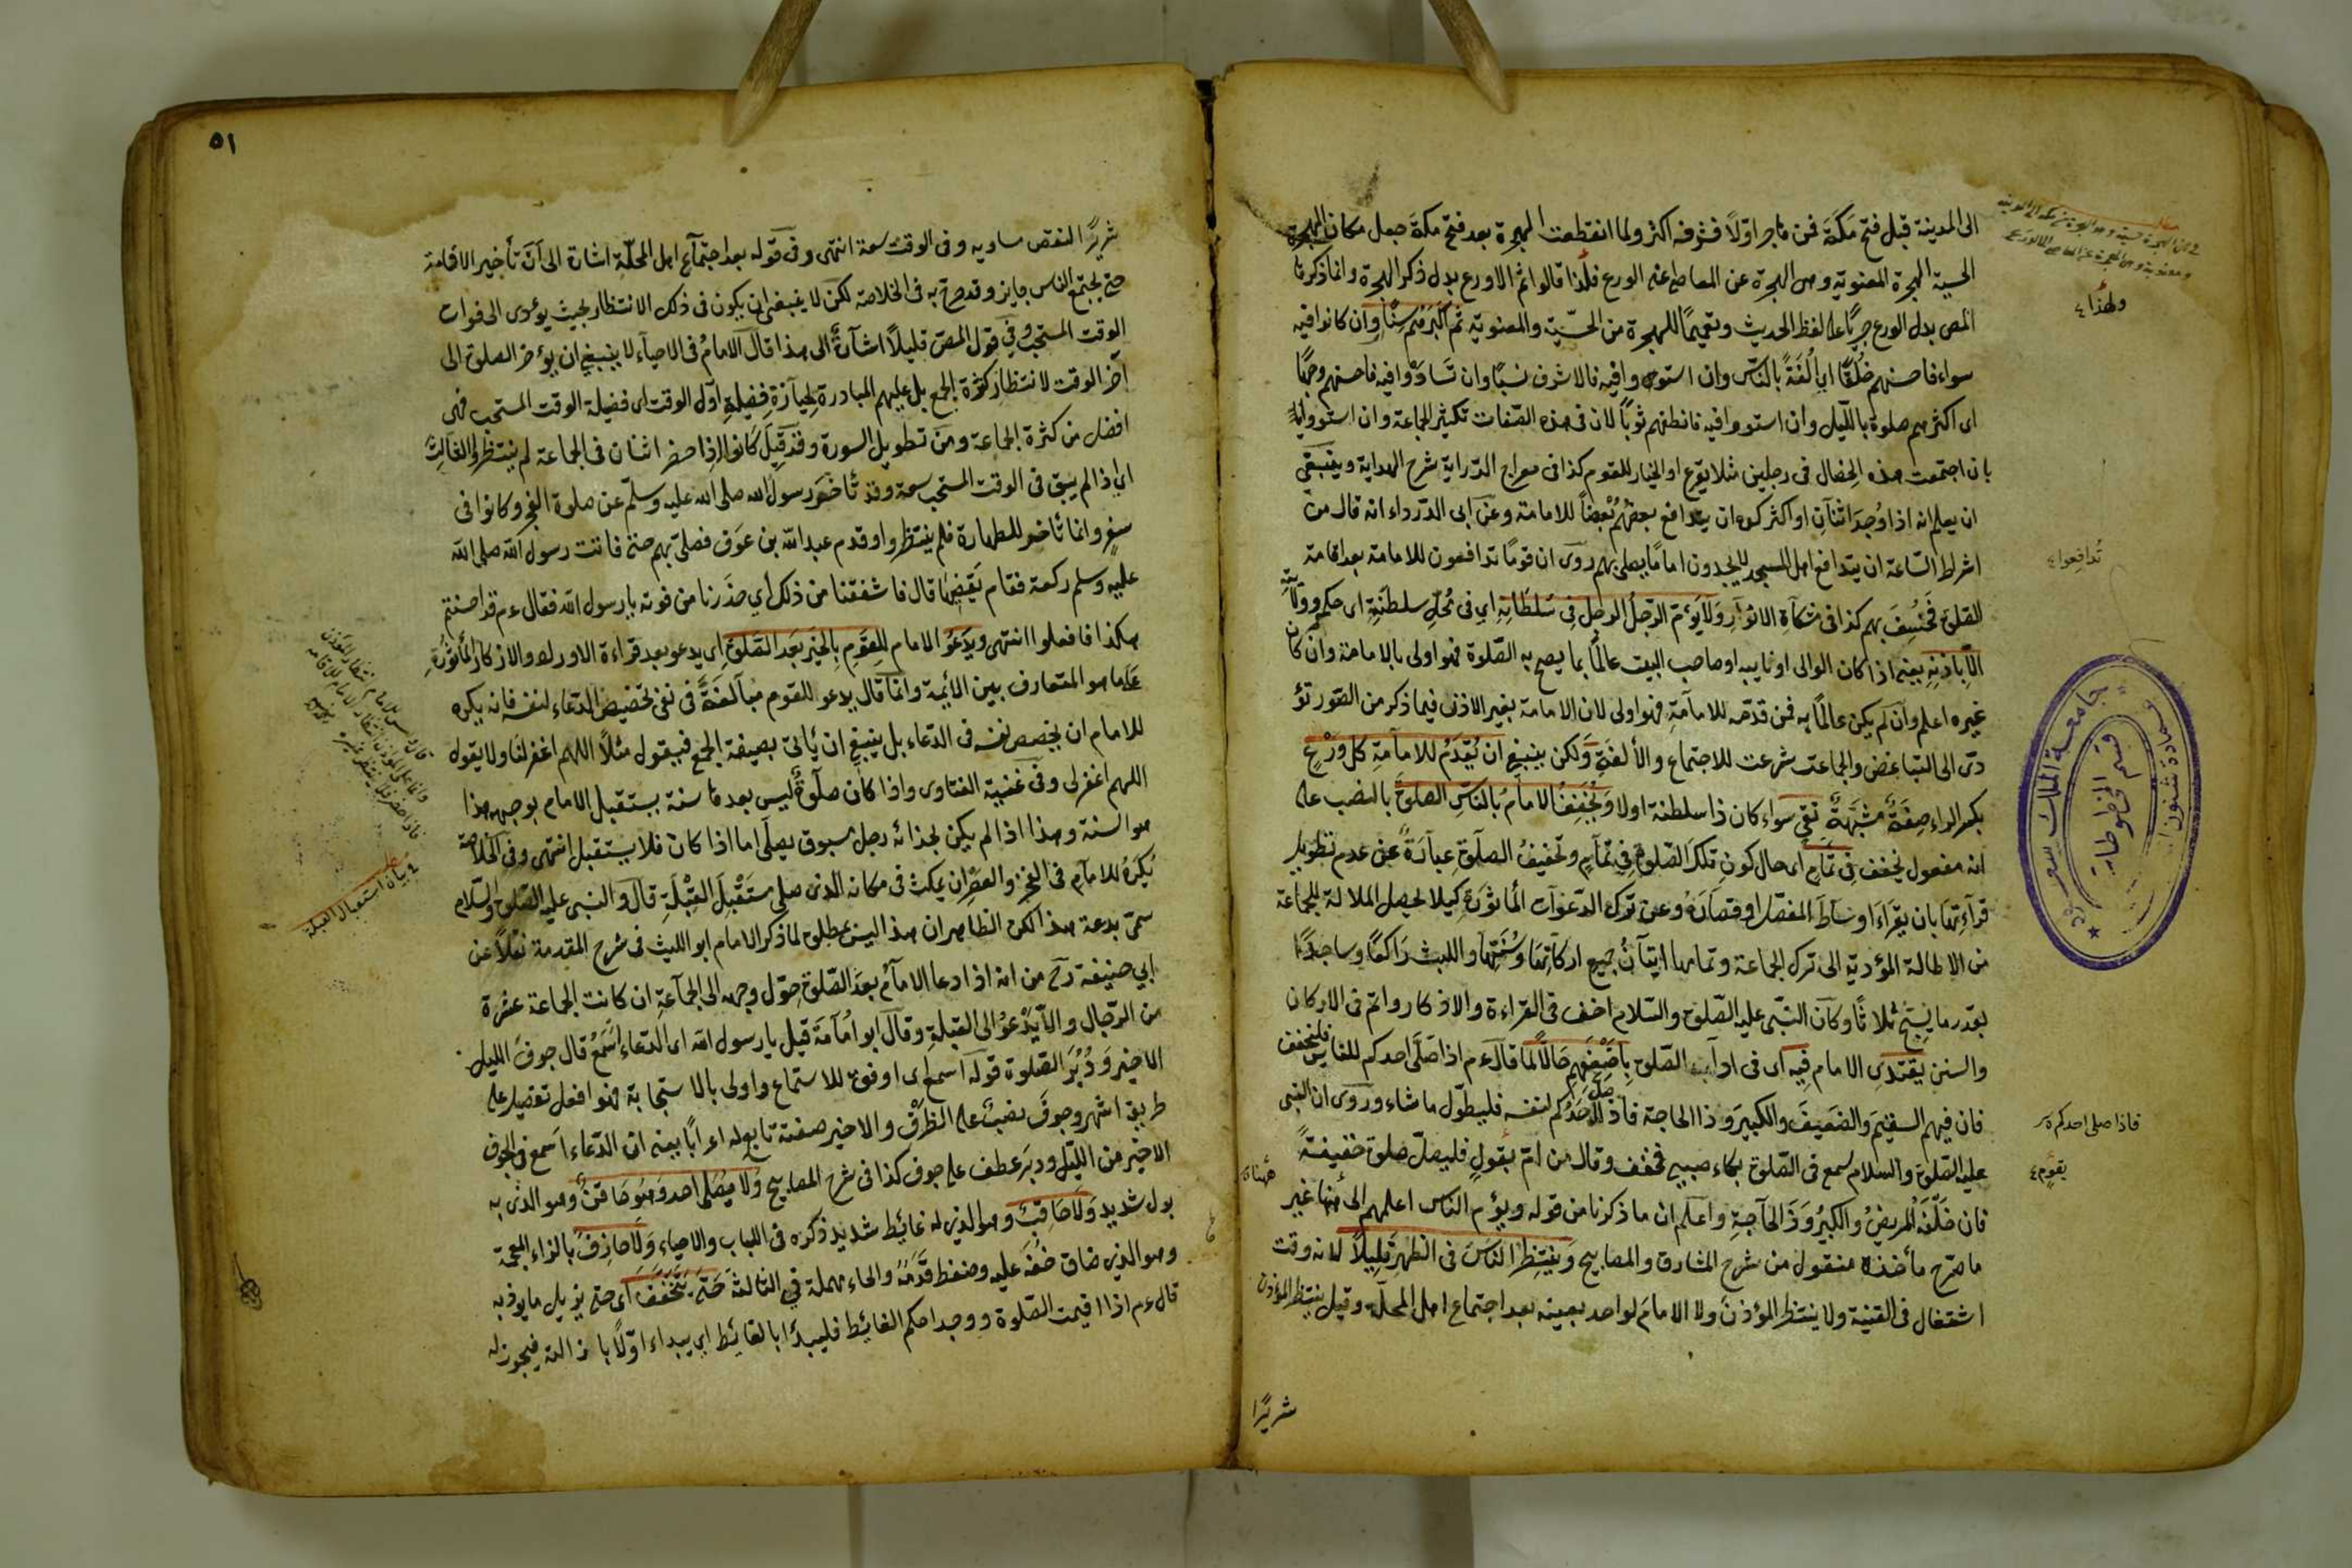 الى المدينة قبل فتح مكة فمن هاجر اولًا فشرفه اكثر ولما انقطعت الهجرة بعد فتح مكة جعل مكان الهجرة
الحسية الهجرة المعنوية وهى الهجرة عن المعاصى الورع فلذا قالوا ثم الاورع بدل ذكر الهجرة وانما ذكرها
المص بدل الورع جريًا على لفظ الحديث وتعميمًا للهجرة من الحسّية والمعنوية ثم اكبرهم سنًا وان كانوا فيه
سواء فاحسنهم خُلُقًا اى اُلْفَةً بالناس وان استووا فيه فالاشرف نسبًا وان تساوَوْا فيه فاحسنهم وجهًا
اى اكثرهم صلوة بالليل وان استووا فيه فانظفهم ثوبًا لان فى هذه الصفات تكثير الجماعة وان استووا
بان اجتمعت هذه الخصال فى رجلين مثلا يقرع او الخيار للقوم كذا فى معراج الدراية شرح الهداية وينبغى
ان يعلم انه اذا وُجِدَ اثنان او اكثر كره ان يتدافع بعضهم بعضًا للامامة وعن ابى الدرداء انه قال من
اشراط الساعة ان يتدافع اهل المسجد لا يجدون امامًا يصلى بهم روى ان قومًا تدافعون للامامة بعد اقامة
الصلوة فَخُسِفَ بهم كذا فى مشكاة الانوار ولا يؤمّ الرجلُ الرجلَ فى سُلطانِهِ اى فى محل سلطنته اى حكمه وولايته
الا باذنه يعنى اذا كان الوالى او نايبه او صاحب البيت عالمًا بما يصح به الصلوة فهو اولى بالامامة وان كان
غيره اعلم وان لم يكن عالمًا به فمن قدمه للامامة فهو اولى لان الامامة بغير الاذن فيما ذكر من الصور تؤ
دّى الى التباغض والجماعت شرعت للاجتماع والألفة ولكن ينبغى ان يُقدَّمُ للامامة كل وَرِعٍ
بكسر الراء صفة مشبهة تقى سواء كان ذا سلطنة اولا ويُخفِفُ الامامُ بالناس الصلوة بالنصب على
انه مفعول يخفف فى تمام اى حال كون تلك الصلوة فى تمام وتخفيفُ الصلوة عبارةً عن عدم تطويل
قرآءتها بان يقراء اوساطَ المفصل او قصارَهُ وعن ترك الدعوات المأثورة كيلا يحصل الملالة للجماعة
من الاطالة المؤدّية الى ترك الجماعة وتمامها اتيانُ جميع اركانها وسُننها واللبث راكعًا وساجدًا
بقدر ما يسبّح ثلاثًا وكان النبى عليه الصلوة والسلام اخف فى القراءة والاذكار واتم فى الاركان
والسنن يقتدى الامام فيه اى فى اداء الصلوة باضعفهم حالًا لما قال عم اذا صلى احدكم للناس فليخفف
فان فيهم السقيم والضعيف والكبير وذا الحاجة فاذا صلى احدكم لنفسه فليطول ما شاء وروى ان النبى
عليه الصلوة والسلام سمع فى الصلوة بكاء صبى فخفف وقال من امّ بقولٍ فليصلّ صلوة خفيفةً
فان خلفَهُ المريضُ والكبيرُ وذا الحاجة واعلم ان ما ذكرنا من قوله ويؤم الناس اعلمهم الى هنا غير
ما صرح مأخذه منقول من شرح المشارق والمصابيح وينتظر الناسَ فى الظهر قليلًا لانه وقت
اشتغال فى القنية ولا ينتظر المؤذن ولا الامام لواحد بعينه بعد اجتماع اهل المحلة وقيل ينتظر المؤذن
شريرًا
ولهذا
تدافعوا
فاذا صلى احدكم
بقوم
جامعة الملك سعود
عمادة شئون
قسم المخطوطات
٥١
شريرًا النقص مساويه وفى الوقت سعة انتهى وفى قوله بعد اجتماع اهل المحلة اشارة الى انّ تأخير الاقامة
حتى يجتمع الناس جايز وقد صرح به فى الخلاصة لكن لا ينبغى ان يكون فى ذلك الانتظار بحيث يؤدى الى فوات
الوقت المستحب وفى قول المص قليلًا اشارةً الى هذا قال الامامُ فى الاحياء لا ينبغى ان يؤخر الصلوة الى
آخر الوقت لانتظار كثرة الجمع بل عليهم المبادرة لحيازة فضيلة اول الوقت اى فضيلة الوقت المستحب فهى
افضل من كثرة الجماعة ومن تطويل السورة وقد قيل كانوا اذا حضر اثنان فى الجماعة لم ينتظروا الثالث
اى اذا لم يبق فى الوقت المستحب سعة وقد تأخر رسول الله صلى الله عليه وسلم عن صلوة الفجر وكانوا فى
سفر وانما تأخر للطهارة فلم ينتظروا وقدم عبد الله بن عوف فصلى بهم حتى فاتت رسول الله صلى الله
عليه وسلم ركعة فقام يقضيها قال فاشفقنا من ذلك اى حذرنا من فوته يا رسول الله فقال عم قد احسنتم
هكذا فافعلوا انتهى ويدعو الامام للقوم بالخير بعد الصلوة اى يدعو بعد قراءة الاوراد والاذكار المأثورة
على ما هو المتعارف بين الائمة وانما قال يدعو للقوم مبالغةً فى نفى تخصيص الدعاء لنفسه فانه يكره
للامام ان يخصص نفسه فى الدعاء بل ينبغى ان يأتى بصيغة الجمع فيقول مثلًا اللهم اغفر لنا ولا يقول
اللهم اغفر لى وفى غنية الفتاوى واذا كان صلوةٌ ليس بعدها سنة يستقبل الامام بوجهه هذا
هو السنة وهذا اذا لم يكن بحذائه رجل مسبوق يصلى اما اذا كان فلا يستقبل انتهى وفى الخلاصة
يُكرَهُ للامام فى الفجر والعصر ان يمكث فى مكانه الذى صلى مستقبل القبلة قال والنبى عليه الصلوة والسلام
سمّى بدعة هذا لكن الظاهر ان هذا ليس بمطلق لما ذكر الامام ابو الليث فى شرح المقدمة نقلًا عن
ابى حنيفة رح من انه اذا دعا الامام بعد الصلوة حوّل وجهه الى الجماعة ان كانت الجماعة عشرة
من الرجال والا يدعو الى القبلة وقال ابو امامة قيل يا رسول الله اى الدعاء اسمع قال جوف الليل
الاخير ودُبُرَ الصلوة قوله اسمع اى اوفق للاستماع واولى بالاستجابة فهو افعل تفضيل على
طريق اشهر وجوف نصب على الظرف والاخير صفته تابع له اعرابًا يعنى ان الدعاء اسمع فى الجوف
الاخير من الليل ودبر عطف على جوف كذا فى شرح المصابيح ولا يصلى احد وهو حاقن وهو الذى به
بول شديد ولا حاقب وهو الذى له غائط شديد ذكره فى اللباب والاحياء ولا حازق بالزاء المعجمة
وهو الذى ضاق خفه عليه وضغط قدمه والحاء مهملة فى الثالثة حتى يتخفف اى حتى يزيل ما يوذيه
قال عم اذا اقيمت الصلوة ووجد احدكم الغائط فليبدأ بالغائط اى يبداء اولًا بازالته فيجوز له
فى بيان استقبال القبلة